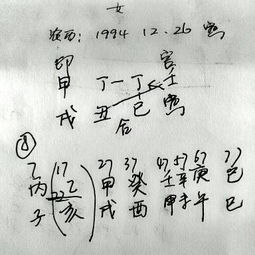 女
1994 12.26 寅
印 官
甲 丁一丁 壬
戌 丑 巳 寅
合
⑧
17 27 37 47 57 67 77
丙 乙 甲 癸 壬 辛 庚 己
子 亥 戌 酉 申 未 午 巳